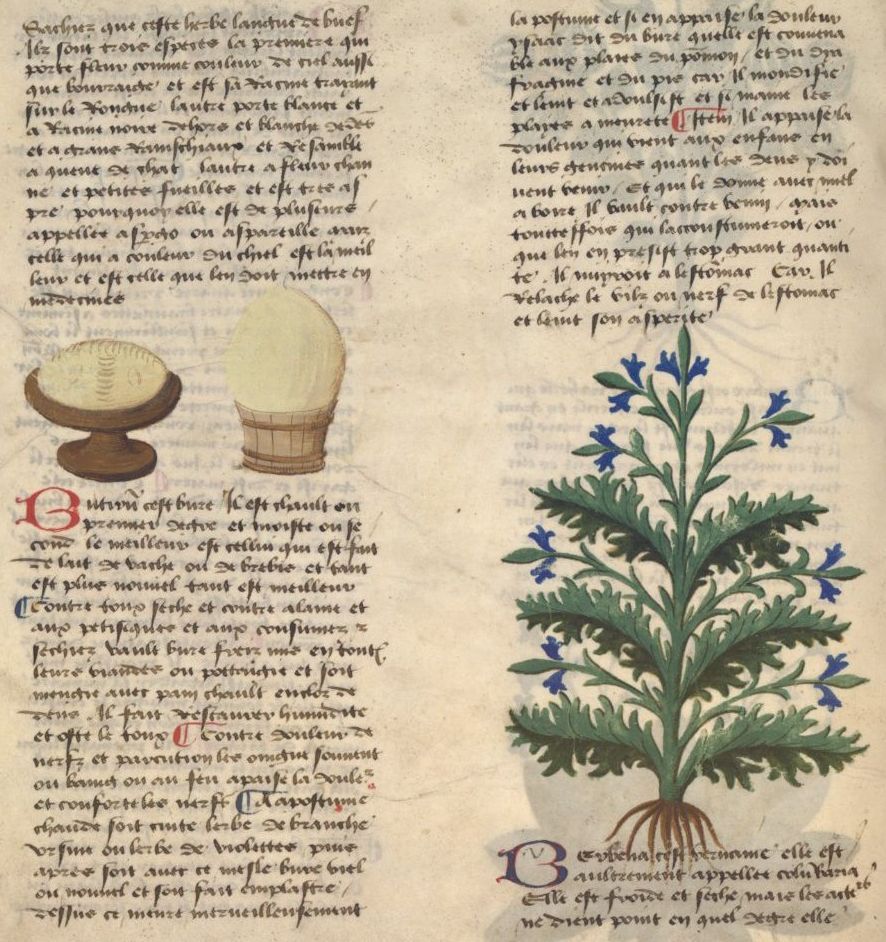 Sachiez que ceste herbe langue de buef
Ilz sont trois especes la premiere qui
porte fleur comme couleur de ciel aussi
que bourraige et est sa Racine trayant
sur le Rougue lautre porte blance et
a Racine noire dehors et blanche dedes
et a grans Rainschiaux et Resamble
a queue de chat lautre a fleur chan
ne et petites fueilles et est tres as
pre pourquoy elle est de plusieurs
appellee aspgo ou aspareille car
celle qui a couleur du chiel est la meil
leur et est celle que len doit mettre en
medecines
Butirū cest bure Il est chault ou
premier degre et moiste ou se
cond le meilleur est cellui qui est fait
de lait de vache ou de brebis et tant
est plus nouvel tant est meilleur
Contre toux seche et contre alaine et
aux petisiques et aux consumez et
sechiez vault bure frez mis en toutes
leurs viandes ou pottaigie et soit
mengie avec pain chault enclos de
dens . Il fait Restaurer humidite
et oste le toux Contre douleur de
nerfz et percution les oingne souvent
ou baing ou au feu apaise la doule
et conforte les nerfz A apostume
chaude soit cuite lerbe de branche
ursine ou lerbe de violettes puis
apres soit avec ce mesle bure viel
ou nouvel et soit fait emplastre /
dessus ce meure merveilleusement
la postume et si en appaise la douleur
ysaac dit du bure quelle est convena
ble aux plaies du pōmon / et du dya
fragme et du pis car Il mondifie
et lenit et adoulsist et si maine les
playes a meurete Item Il appaise la
douleur qui vient aux enfans en
leurs gencives quant les dens y doi
uent venir / Et qui le donne avec miel
a boire Il vault contre venin / mais
touteffois qui lacoustumeroit / ou
que len en presist trop grant quanti
te . Il nuyroit a lestomac Car Il
Relache le vilz ou nerf de lestomac
et lenit son asperite
Berbena cest vervaine elle est
aultrement appellee colūbaria
Elle est froide et seche / mais les acte
ne dient point en quel degre elle